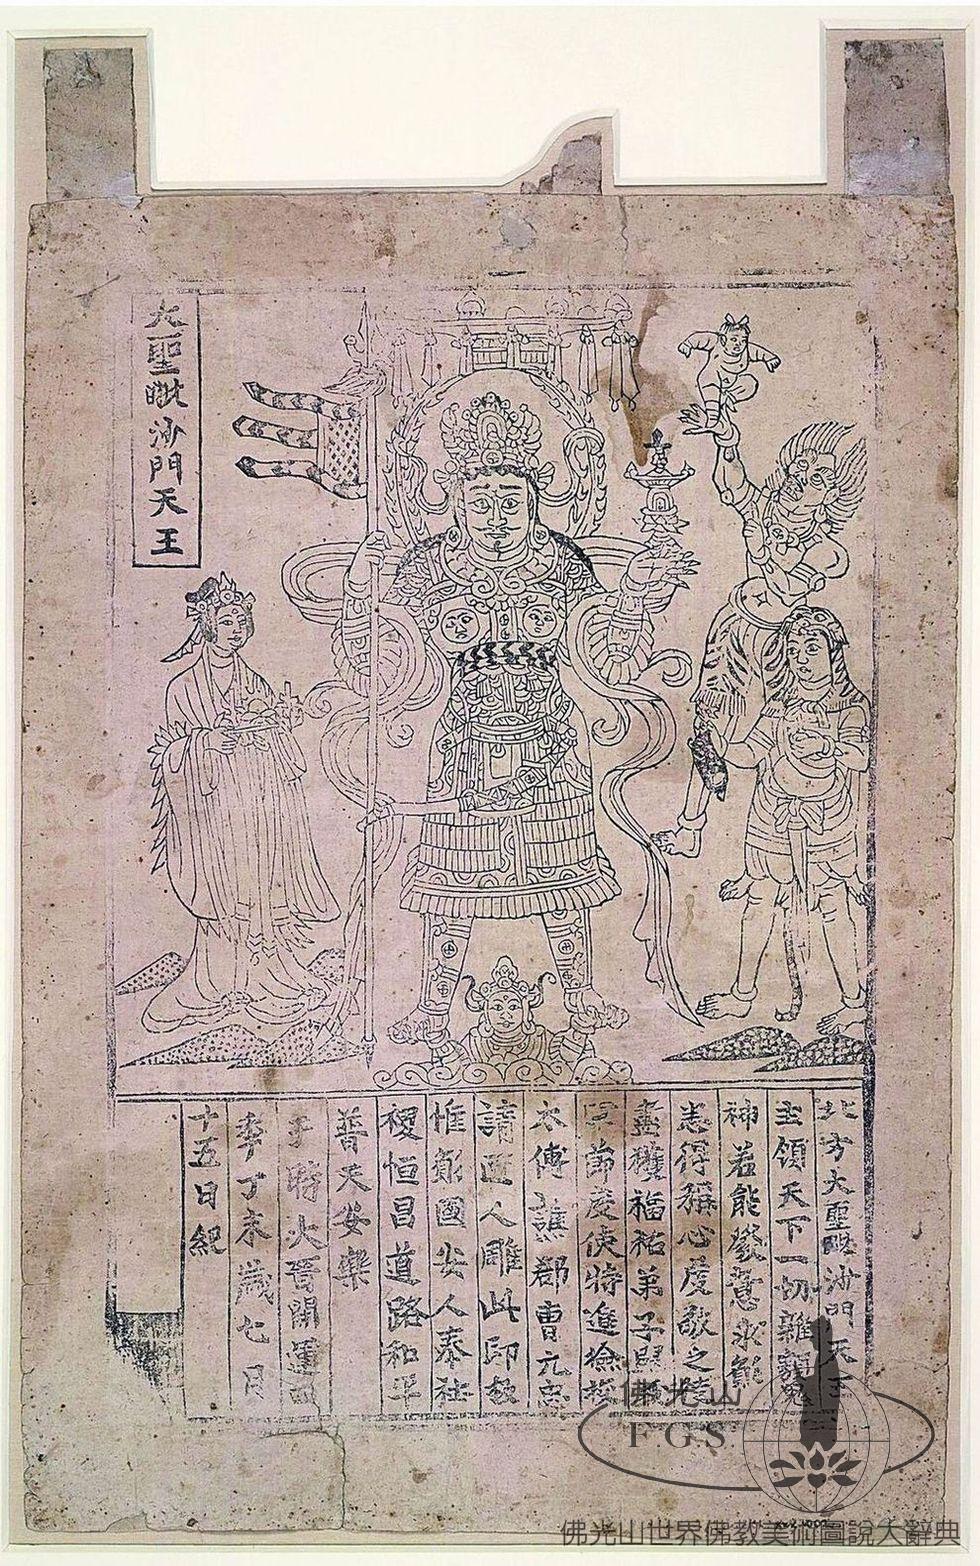 大聖毗沙門天王
北方大聖毗沙門天王
主領天下一切雜類鬼
神若能發意求願
悉得稱心虔敬之徒
盡獲福祐弟子歸義
軍節度使特進檢校
太傅譙郡曹元忠
請匠人雕此印板
惟願國安人泰社
稷恒昌道路和平
普天安樂
于時大晉開運四
年丁未歲七月
十五日紀
佛光山
FGS
佛光山世界佛教美術圖說大辭典